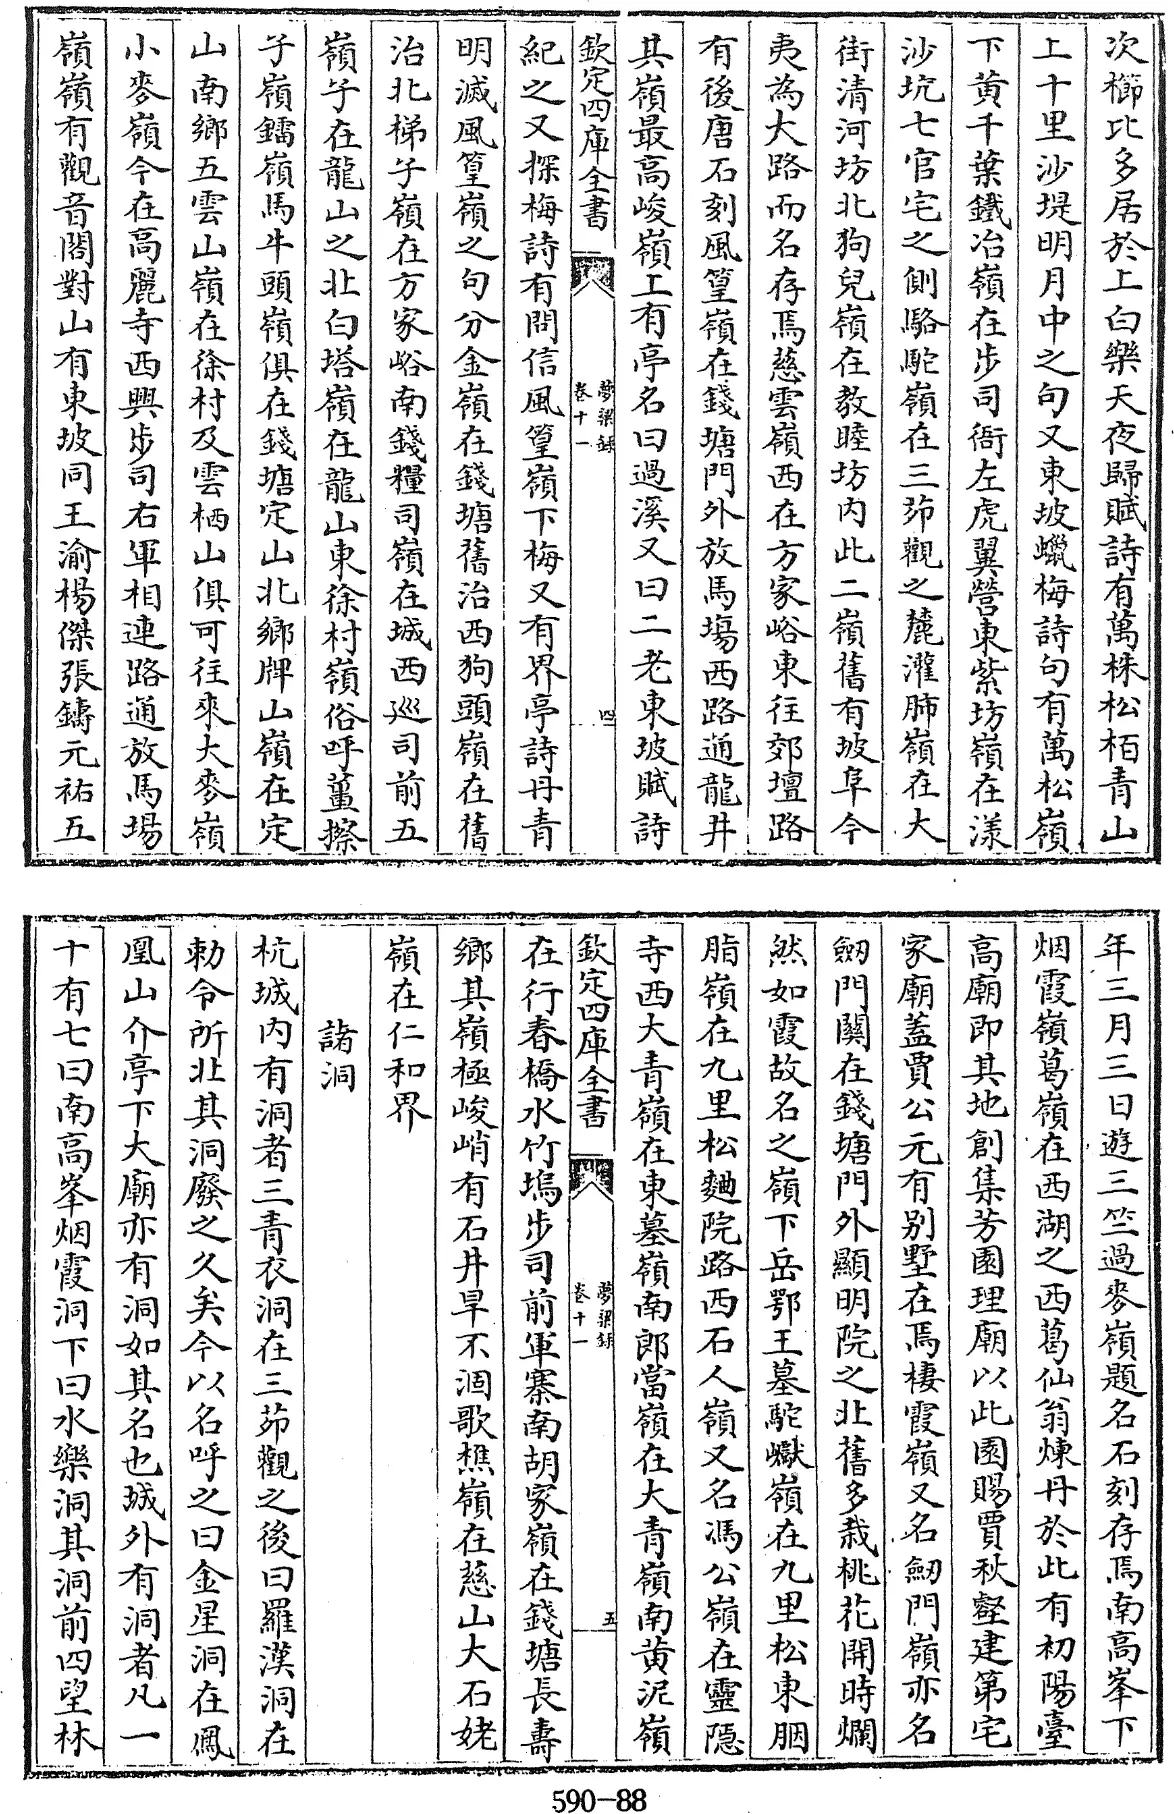 次櫛比多居於上白樂天夜歸賦詩有萬株松栢青山
上十里沙堤明月中之句又東坡蠟梅詩句有萬松嶺
下黄千葉鐵冶嶺在步司衙左虎翼營東紫坊嶺在漾
沙坑七官宅之側駱駝嶺在三茆觀之麓灌肺嶺在大
街清河坊北狗兒嶺在教睦坊内此二嶺舊有坡阜今
夷為大路而名存焉慈雲嶺西在方家峪東往郊壇路
有後唐石刻風篁嶺在錢塘門外放馬塲西路通龍井
其嶺最高峻嶺上有亭名曰過溪又曰二老東坡賦詩
欽定四庫全書 夢粱録 卷十一 四
紀之又探梅詩有問信風篁嶺下梅又有界亭詩丹青
明滅風篁嶺之句分金嶺在錢塘舊治西狗頭嶺在舊
治北梯子嶺在方家峪南錢糧司嶺在城西廵司前五
嶺子在龍山之北白塔嶺在龍山東徐村嶺俗呼薑擦
子嶺鐳嶺馬牛頭嶺俱在錢塘定山北鄉牌山嶺在定
山南鄉五雲山嶺在徐村及雲栖山俱可往來大麥嶺
小麥嶺今在高麗寺西興步司右軍相連路通放馬場
嶺嶺有觀音閣對山有東坡同王渝楊傑張鑄元祐五
年三月三日遊三竺過麥嶺題名石刻存焉南高峯下
烟霞嶺葛嶺在西湖之西葛仙翁煉丹於此有初陽臺
高廟即其地創集芳園理廟以此園賜賈秋壑建第宅
家廟蓋賈公元有别墅在焉棲霞嶺又名劒門嶺亦名
劒門關在錢塘門外顯明院之北舊多栽桃花開時爛
然如霞故名之嶺下岳鄂王墓駝巘嶺在九里松東胭
脂嶺在九里松麯院路西石人嶺又名馮公嶺在靈隱
寺西大青嶺在東墓嶺南郎當嶺在大青嶺南黄泥嶺
欽定四庫全書 夢粱録 卷十一 五
在行春橋水竹塢步司前軍寨南胡家嶺在錢塘長壽
鄉其嶺極峻峭有石井旱不涸歌樵嶺在慈山大石姥
嶺在仁和界
諸洞
杭城内有洞者三青衣洞在三茆觀之後曰羅漢洞在
勅令所北其洞廢之久矣今以名呼之曰金星洞在鳳
凰山介亭下大廟亦有洞如其名也城外有洞者凡一
十有七曰南高峯烟霞洞下曰水樂洞其洞前四望林
590-88